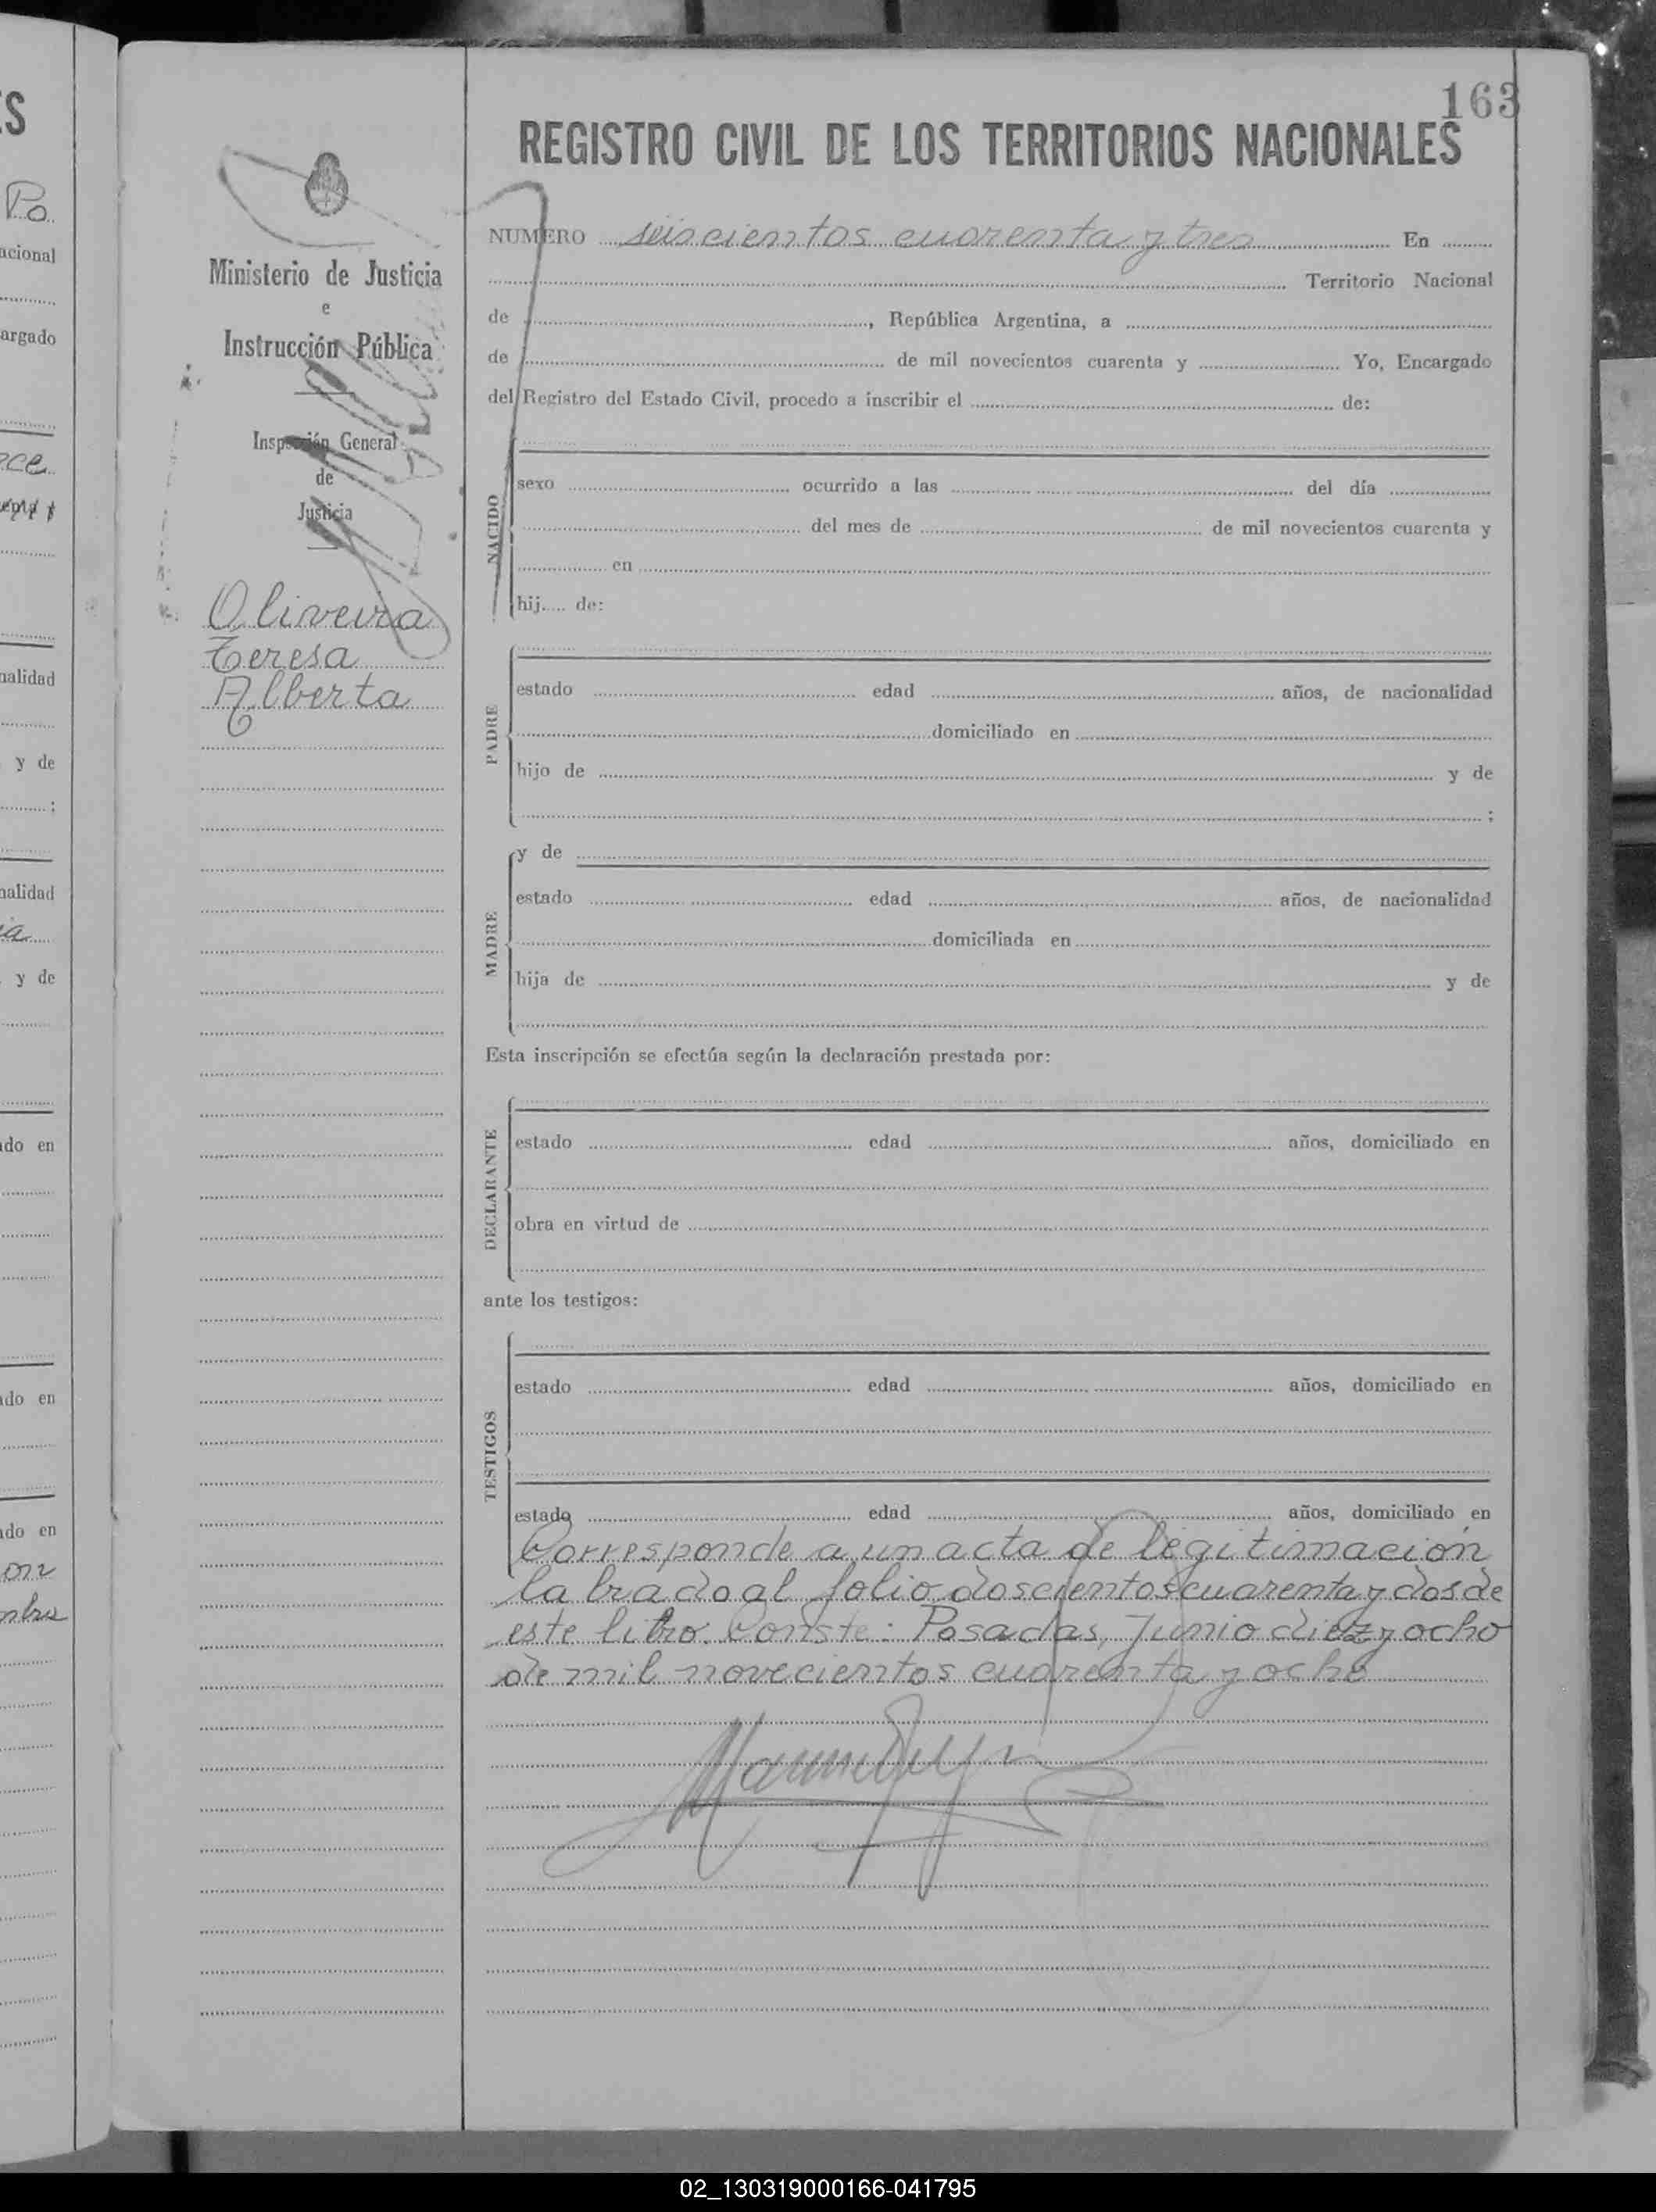 163
REGISTRO CIVIL DE LOS TERRITORIOS NACIONALES
Ministerio de Justicia
e
Instrucción Pública
Inspección General
de
Justicia
Oliveira
Teresa
Alberta
NUMERO seiscientos cuarenta y tres En
Territorio Nacional
de , República Argentina, a
de de mil novecientos cuarenta y Yo, Encargado
del Registro del Estado Civil, procedo a inscribir el de:
NACIDO
sexo ocurrido a las del día
del mes de de mil novecientos cuarenta y
en
hij.... de:
PADRE
estado edad años, de nacionalidad
domiciliado en
hijo de y de
;
MADRE
y de
estado edad años, de nacionalidad
domiciliada en
hija de y de
Esta inscripción se efectúa según la declaración prestada por:
DECLARANTE
estado edad años, domiciliado en
obra en virtud de
ante los testigos:
TESTIGOS
estado edad años, domiciliado en
estado edad años, domiciliado en
Corresponde a un acta de legitimación
labrado al folio doscientos cuarenta y dos de
este libro. Conste: Posadas, Junio diez y ocho
de mil novecientos cuarenta y ocho
S
Po
acional
argado
ce
nalidad
y de
;
nalidad
ia
y de
ado en
ado en
ado en
on
mbre
02_130319000166-041795